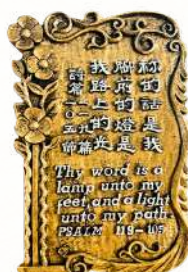 祢的話是我
腳前的燈是
我路上的光
詩篇一一九篇
一〇五節
Thy word is a
lamp unto my
feet, and a light
unto my path.
PSALM 119-105